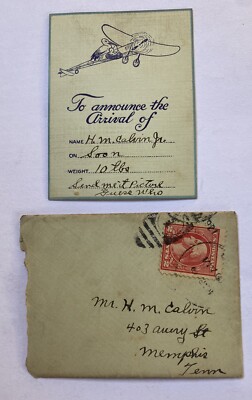 To announce the
Arrival of
NAME H. M. Calvin Jr.
ON Soon
WEIGHT 10 lbs
Send me it Picture
Guess Who
Mr. H. M. Calvin
403 avery St
Memphis
Tenn